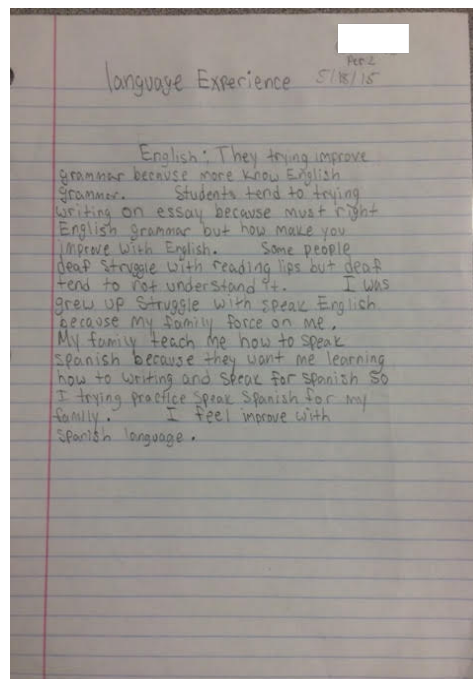 Per 2
language Experience 5/18/15
English: They trying improve
grammar because more know English
grammar. Students tend to trying
writing on essay because must right
English grammar but how make you
improve with English. Some people
deaf struggle with reading lips but deaf
tend to not understand it. I was
grew up struggle with speak English
because my family force on me.
My family teach me how to speak
spanish because they want me learning
how to writing and speak for spanish so
I trying practice speak spanish for my
family. I feel improve with
spanish language.